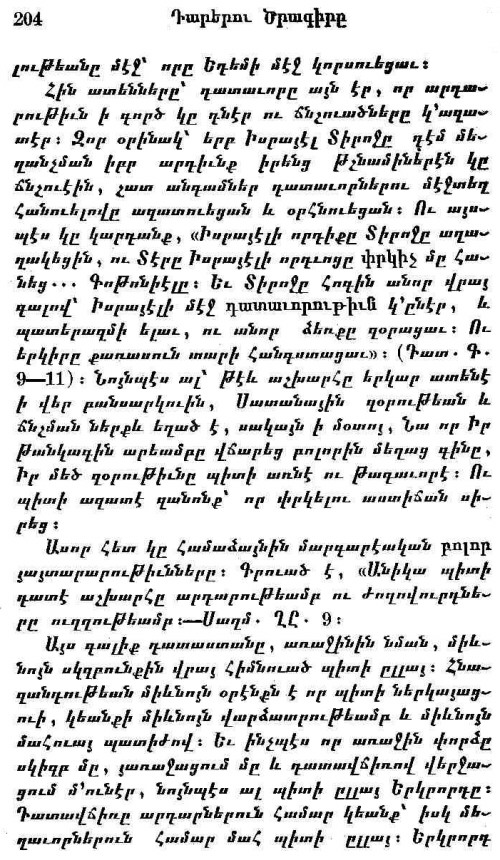 204 Դարերու Ծրագիրը
լութեանը մէջ՝ որը Եդեմի մէջ կորսուեցաւ։
Հին ատենները՝ դատաւորը այն էր, որ արդա-
րութիւն ի գործ կը դնէր ու ճնշուածները կ’ազա-
տէր։ Զոր օրինակ՝ երբ Իսրայէլ Տիրոջը դէմ մե-
ղանչման իբր արդիւնք իրենց թշնամիներէն կը
ճնշուէին, շատ անդամներ դատաւորներու մէջտեղ
հանուելովը ազատուեցան և օրհնուեցան։ Ու այս-
պէս կը կարդանք, «Իսրայէլի որդիքը Տիրոջը աղա-
ղակեցին, ու Տէրը Իսրայէլի որդւոցը փրկիչ մը հա-
նեց... Գոթոնիէլը։ Եւ Տիրոջը հոգին անոր վրայ
գալով՝ Իսրայէլի մէջ դատաւորութիւն կ’ընէր, և
պատերազմի ելաւ, ու անոր ձեռքը զօրացաւ։ Ու
երկիրը քառասուն տարի հանդստացաւ»։ (Դատ. Գ.
9—11)։ Նոյնպէս ալ՝ թէև աշխարհը երկար ատենէ
ի վեր բանսարկուին, Սատանային զօրութեան և
ճնշման ներքև եղած է, սակայն ի մօտոյ, Նա որ Իր
թանկագին արեամբը վճարեց բոլորին մեղաց գինը,
Իր մեծ զօրութիւնը պիտի առնէ ու թագաւորէ։ Ու
պիտի ազատէ զանոնք՝ որ փրկելու աստիճան սի-
րեց։
Ասոր հետ կը համաձայնին մարգարէական բոլոր
յայտարարութիւնները։ Գրուած է, «Անիկա պիտի
դատէ աշխարհը արդարութեամբ ու ժողովուրդնե-
րը ուղղութեամբ։—Սաղմ. ՂԸ. 9։
Այս գալիք դատաստանը, առաջինին նման, միև-
նոյն սկզբունքին վրայ հիմնուած պիտի ըլլայ։ Հնա-
զանդութեան միևնոյն օրէնքն է որ պիտի ներկայաց-
ուի, կեանքի միևնոյն վարձատրութեամբ և միևնոյն
մահուայ պատիժով։ Եւ ինչպէս որ առաջին փորձը
սկիզբ մը, յառաջացում մը և դատավճիռով վերջա-
ցում մ’ունէր, նոյնպէս ալ պիտի ըլլայ Երկրորդը։
Դատավճիռը արդարներուն համար կեանք՝ իսկ մե-
ղաւորներուն համար մահ պիտի ըլլայ։ Երկրորդ